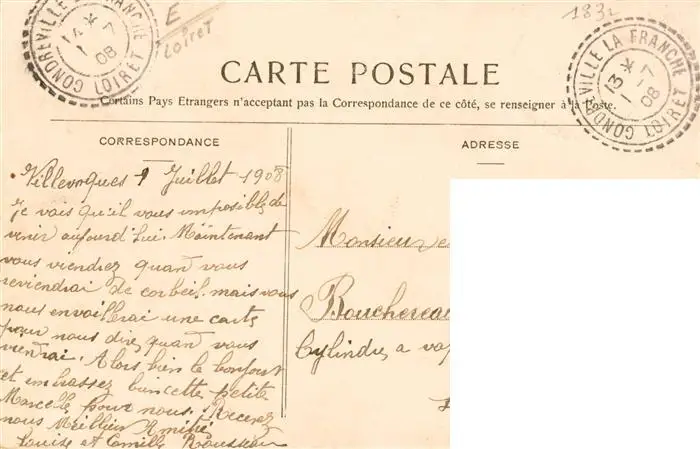 CONDREVILLE LA FRANCHE
14 *
1 - 7
08
LOIRET
E
Loiret
183
CONDREVILLE LA FRANCHE
13 *
1 - 7
08
LOIRET
CARTE POSTALE
Certains Pays Etrangers n'acceptant pas la Correspondance de ce côté, se renseigner à la Poste.
CORRESPONDANCE
ADRESSE
Villevoques 1 Juillet 1908
Je vais qu'il vous imposible de
venir aujourd'Lui. Maintenant
vous viendrez quand vous
reviendrai de corbeil. mais vous
nous envoillerai une carte
pour nous dire quand vous
viendrai. Alors bien le bonjour
et embrassez bien cette petite
Marcelle pour nous. Recevez
nous Meillieu Amitié
Louise et Camille Rousseau
Monsieur
Bouchereau
Cylindre a vap